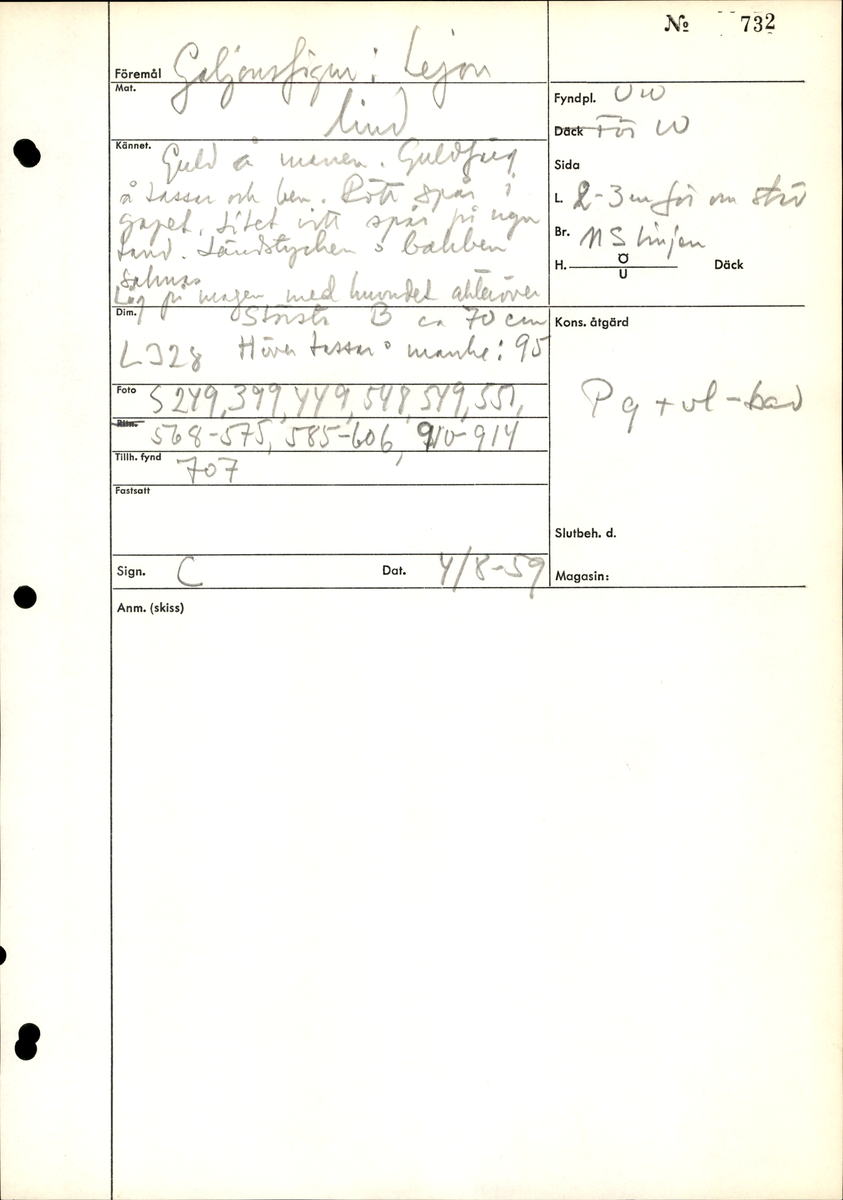 № 732
Föremål Galjonsfigur: Lejon
Mat. lind
Kännet. Guld å manen. Guldfärg
å tassar och ben. Rött spår i
gapet. Litet vitt spår på ngn
tand. Ländstycken o bakben
saknas
Låg på magen med huvudet akteröver
Dim. Största B ca 70 cm
L 328 Höver tassar o manke: 95
Foto S 249, 399, 449, 548, 549, 551,
Ritn. 568-575, 585-606, 910-914
Tillh. fynd 707
Fastsatt
Sign. C Dat. 4/8-59
Fyndpl. UW
Däck För W
Sida
L. 2-3 m för om stäv
Br. NS linjen
H. Ö U Däck
Kons. åtgärd
Pg + vl-bad
Slutbeh. d.
Magasin:
Anm. (skiss)